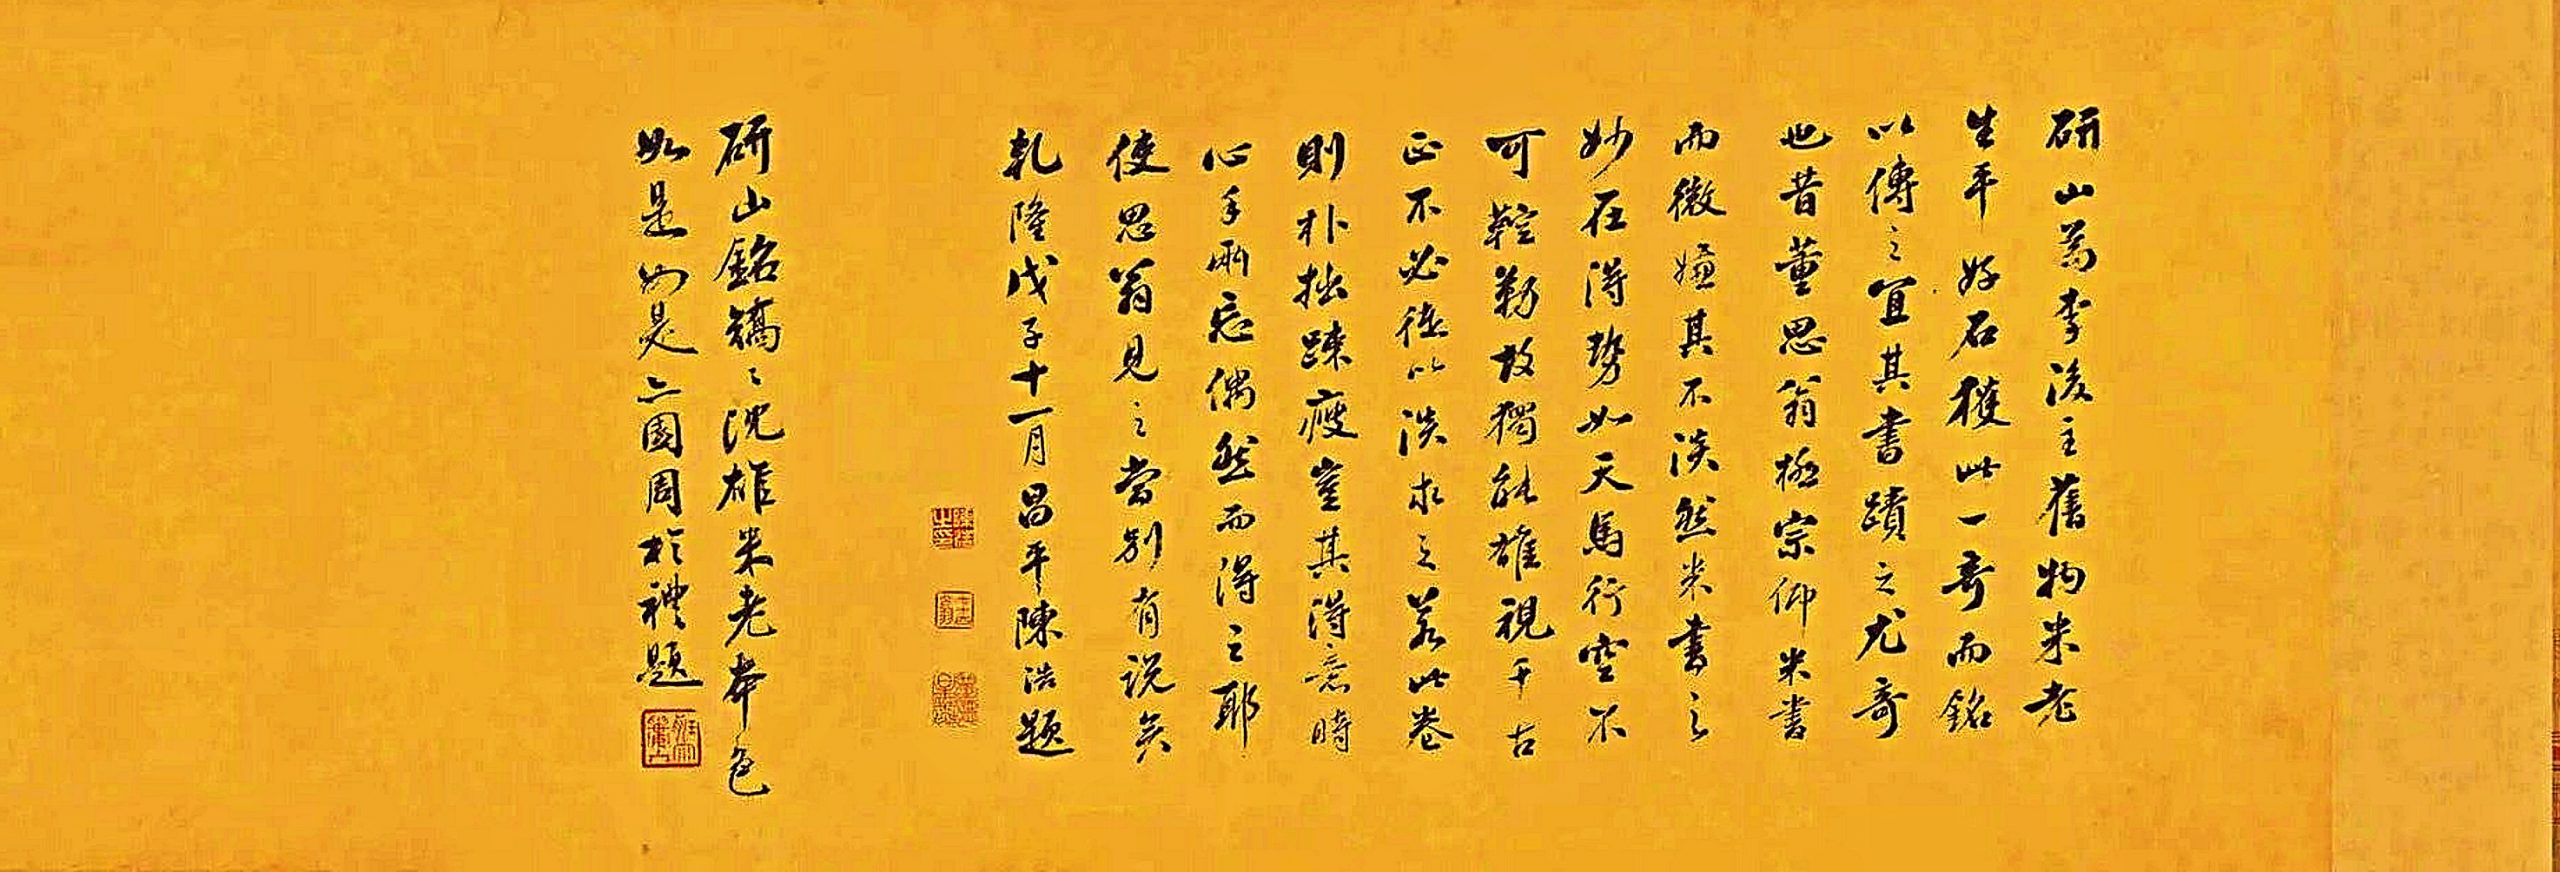 研山爲李後主舊物米老
生平好石獲此一奇而銘
以傳之宜其書蹟之尤奇
也昔董思翁極宗仰米書
而微嫌其不淡然米書之
妙在得勢如天馬行空不
可鞚勒故獨能雄視千古
正不必徒以淡求之若此卷
則朴拙疎瘦豈其得意時
心手兩忘偶然而得之耶
使思翁見之當別有說矣
乾隆戊子十一月昌平陳浩題
研山銘鐍〻沈雄米老本色
如是如是亡國周於禮題